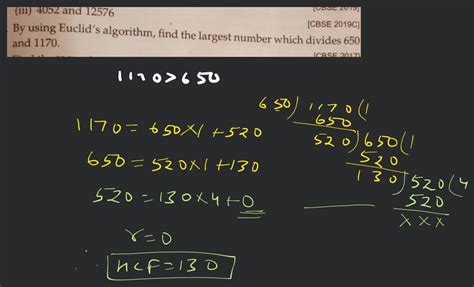 (iii) 4052 and 12576
[CBSE 2019]
By using Euclid's algorithm, find the largest number which divides 650
[CBSE 2019C]
and 1170.
[CBSE 2017]
1170>650
1170 = 650×1+520
650 = 520×1+130
520 = 130×4+0
r=0
∴ HCF=130
650) 1170 (1
650
520) 650 (1
520
130) 520 (4
520
×××